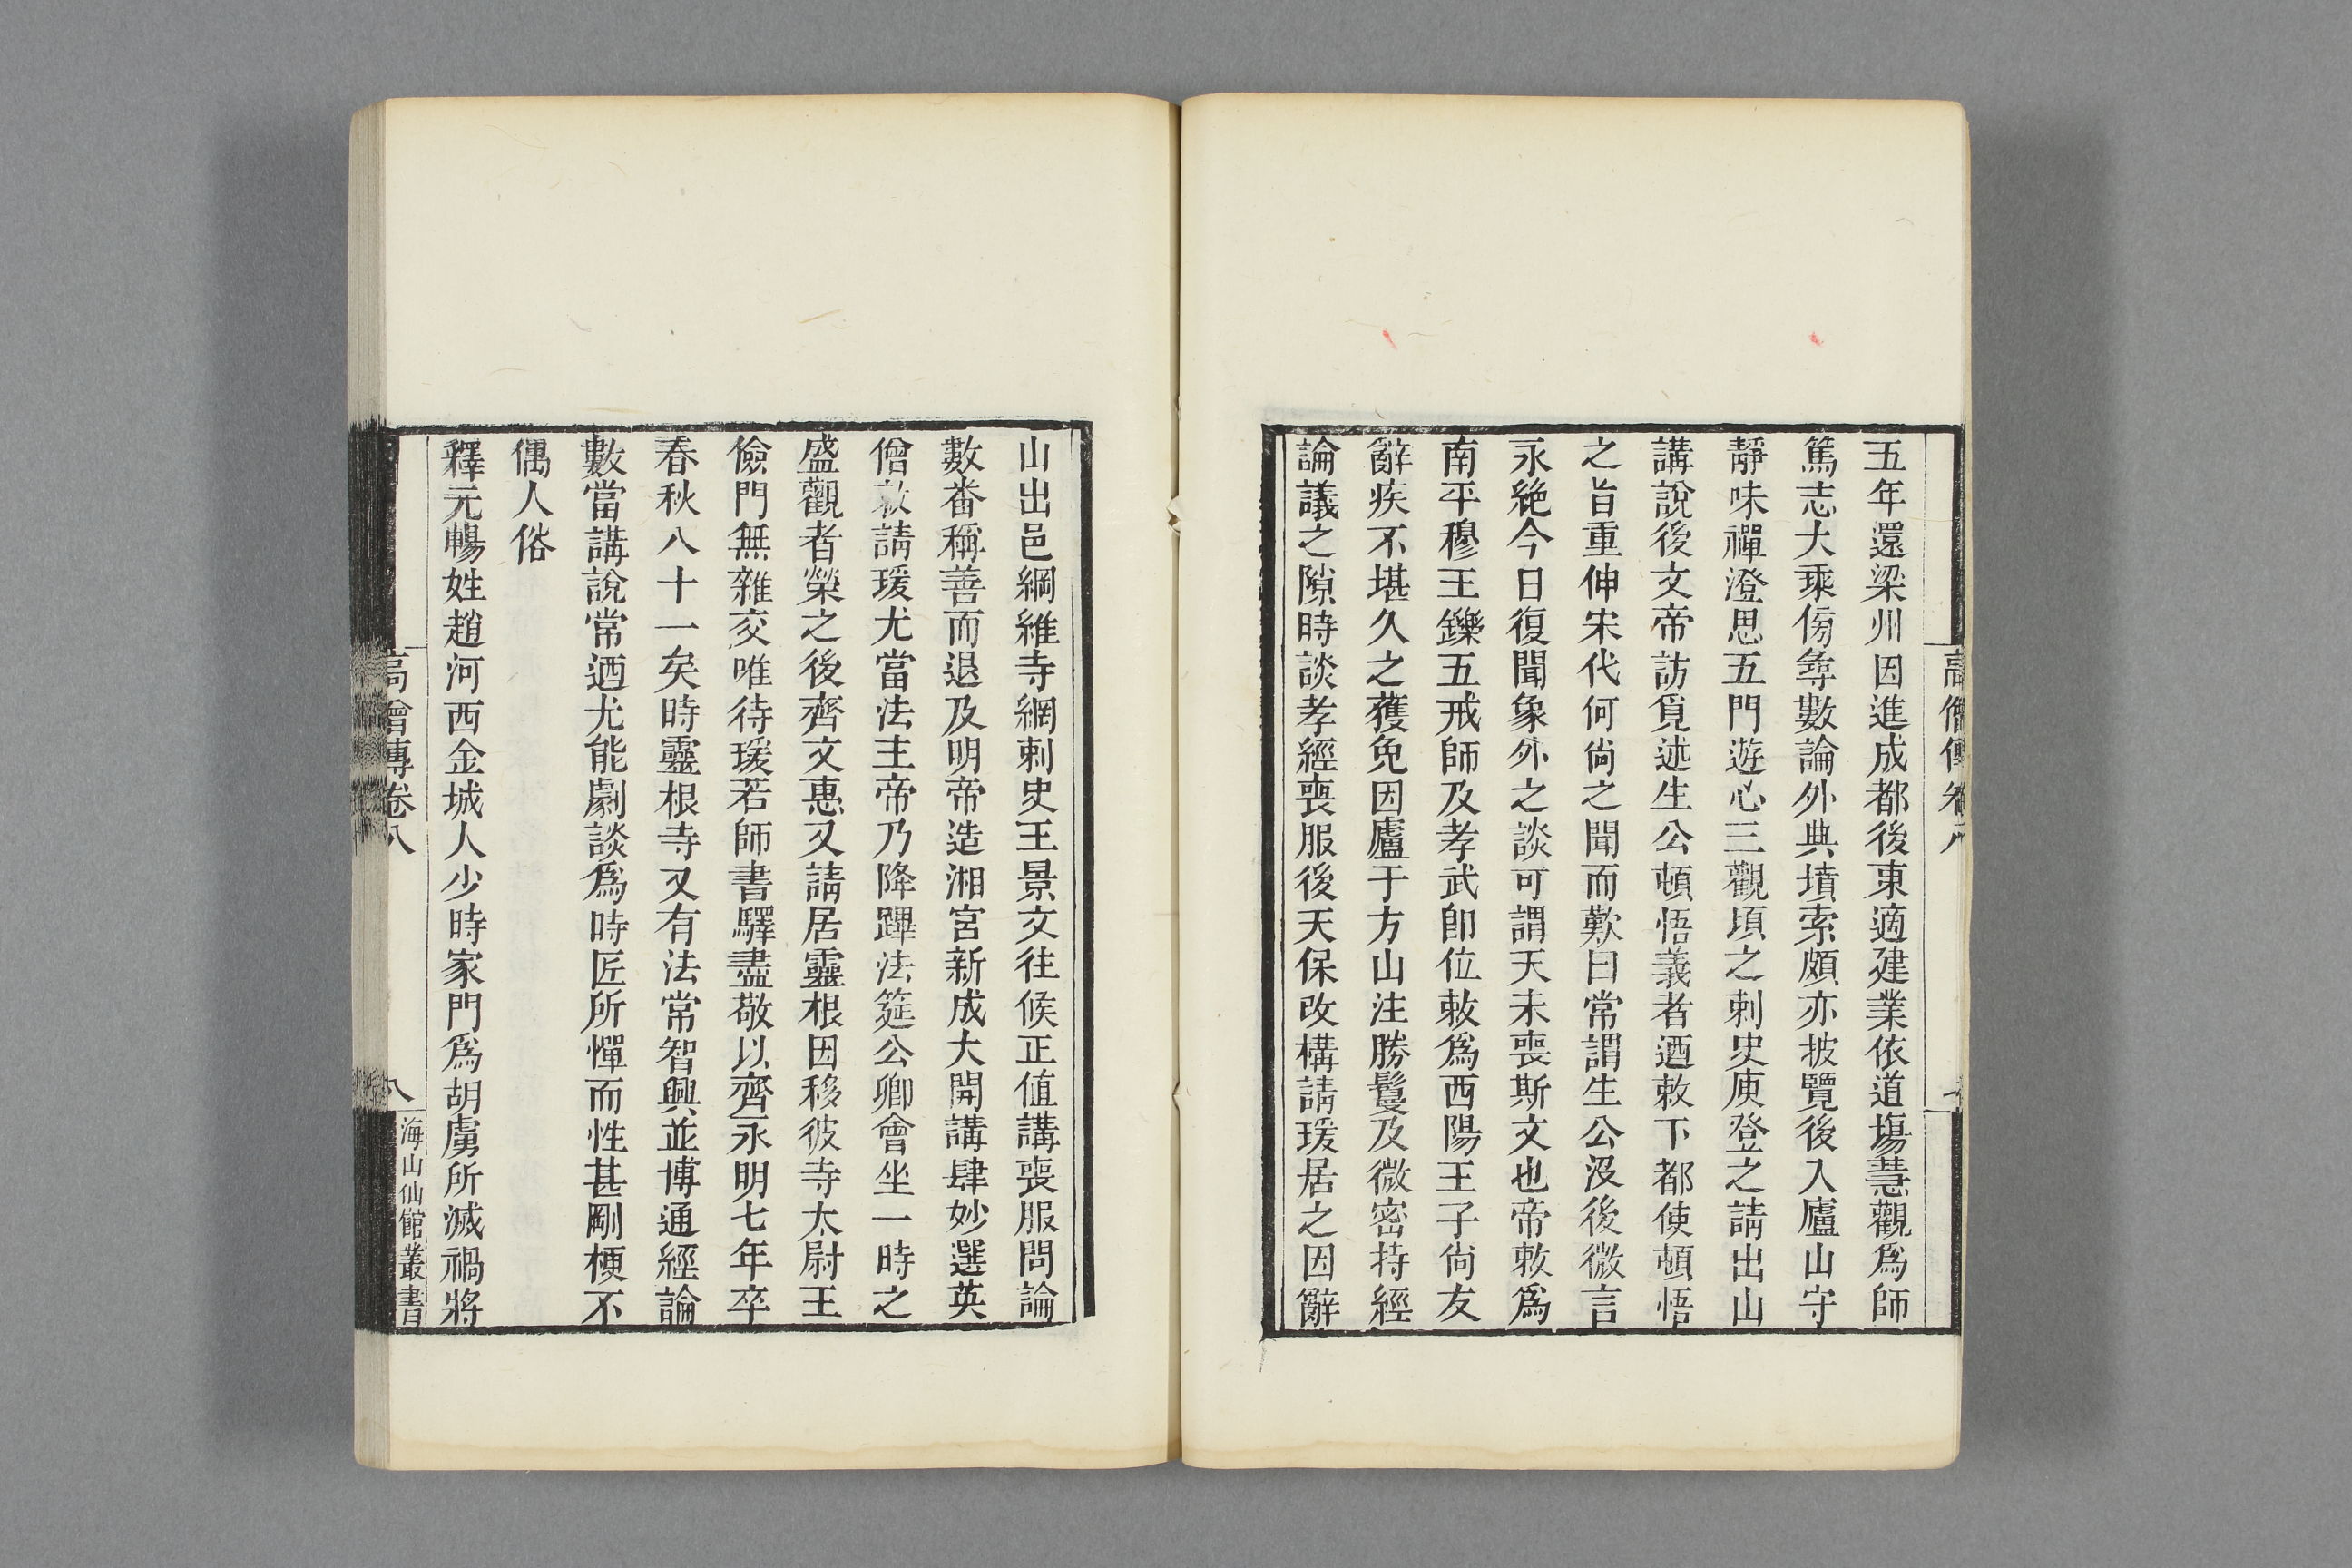 高僧傳卷八
五年還梁州因進成都後東適建業依道塲慧觀爲師
篤志大乘傍尋數論外典墳索頗亦披覽後入廬山守
靜味禪澄思五門遊心三觀頃之刺史庾登之請出山
講說後文帝訪覓述生公頓悟義者迺敕下都使頓悟
之旨重伸宋代何尙之聞而歎曰常謂生公沒後微言
永絶今日復聞象外之談可謂天未喪斯文也帝敕爲
南平穆王鑠五戒師及孝武卽位敕爲西陽王子尙友
辭疾不堪久之獲免因廬于方山注勝鬘及微密持經
論議之隙時談孝經喪服後天保改構請瑗居之因辭
山出邑綱維寺網刺史王景文往候正值講喪服問論
數番稱善而退及明帝造湘宮新成大開講肆妙選英
僧敕請瑗尤當法主帝乃降蹕法筵公卿會坐一時之
盛觀者榮之後齊文惠又請居靈根因移彼寺太尉王
儉門無雜交唯待瑗若師書驛盡敬以齊永明七年卒
春秋八十一矣時靈根寺又有法常智興並博通經論
數當講說常迺尤能劇談爲時匠所憚而性甚剛梗不
偶人俗
釋元暢姓趙河西金城人少時家門爲胡虜所滅禍將
高僧傳卷八
八
海山仙館叢書